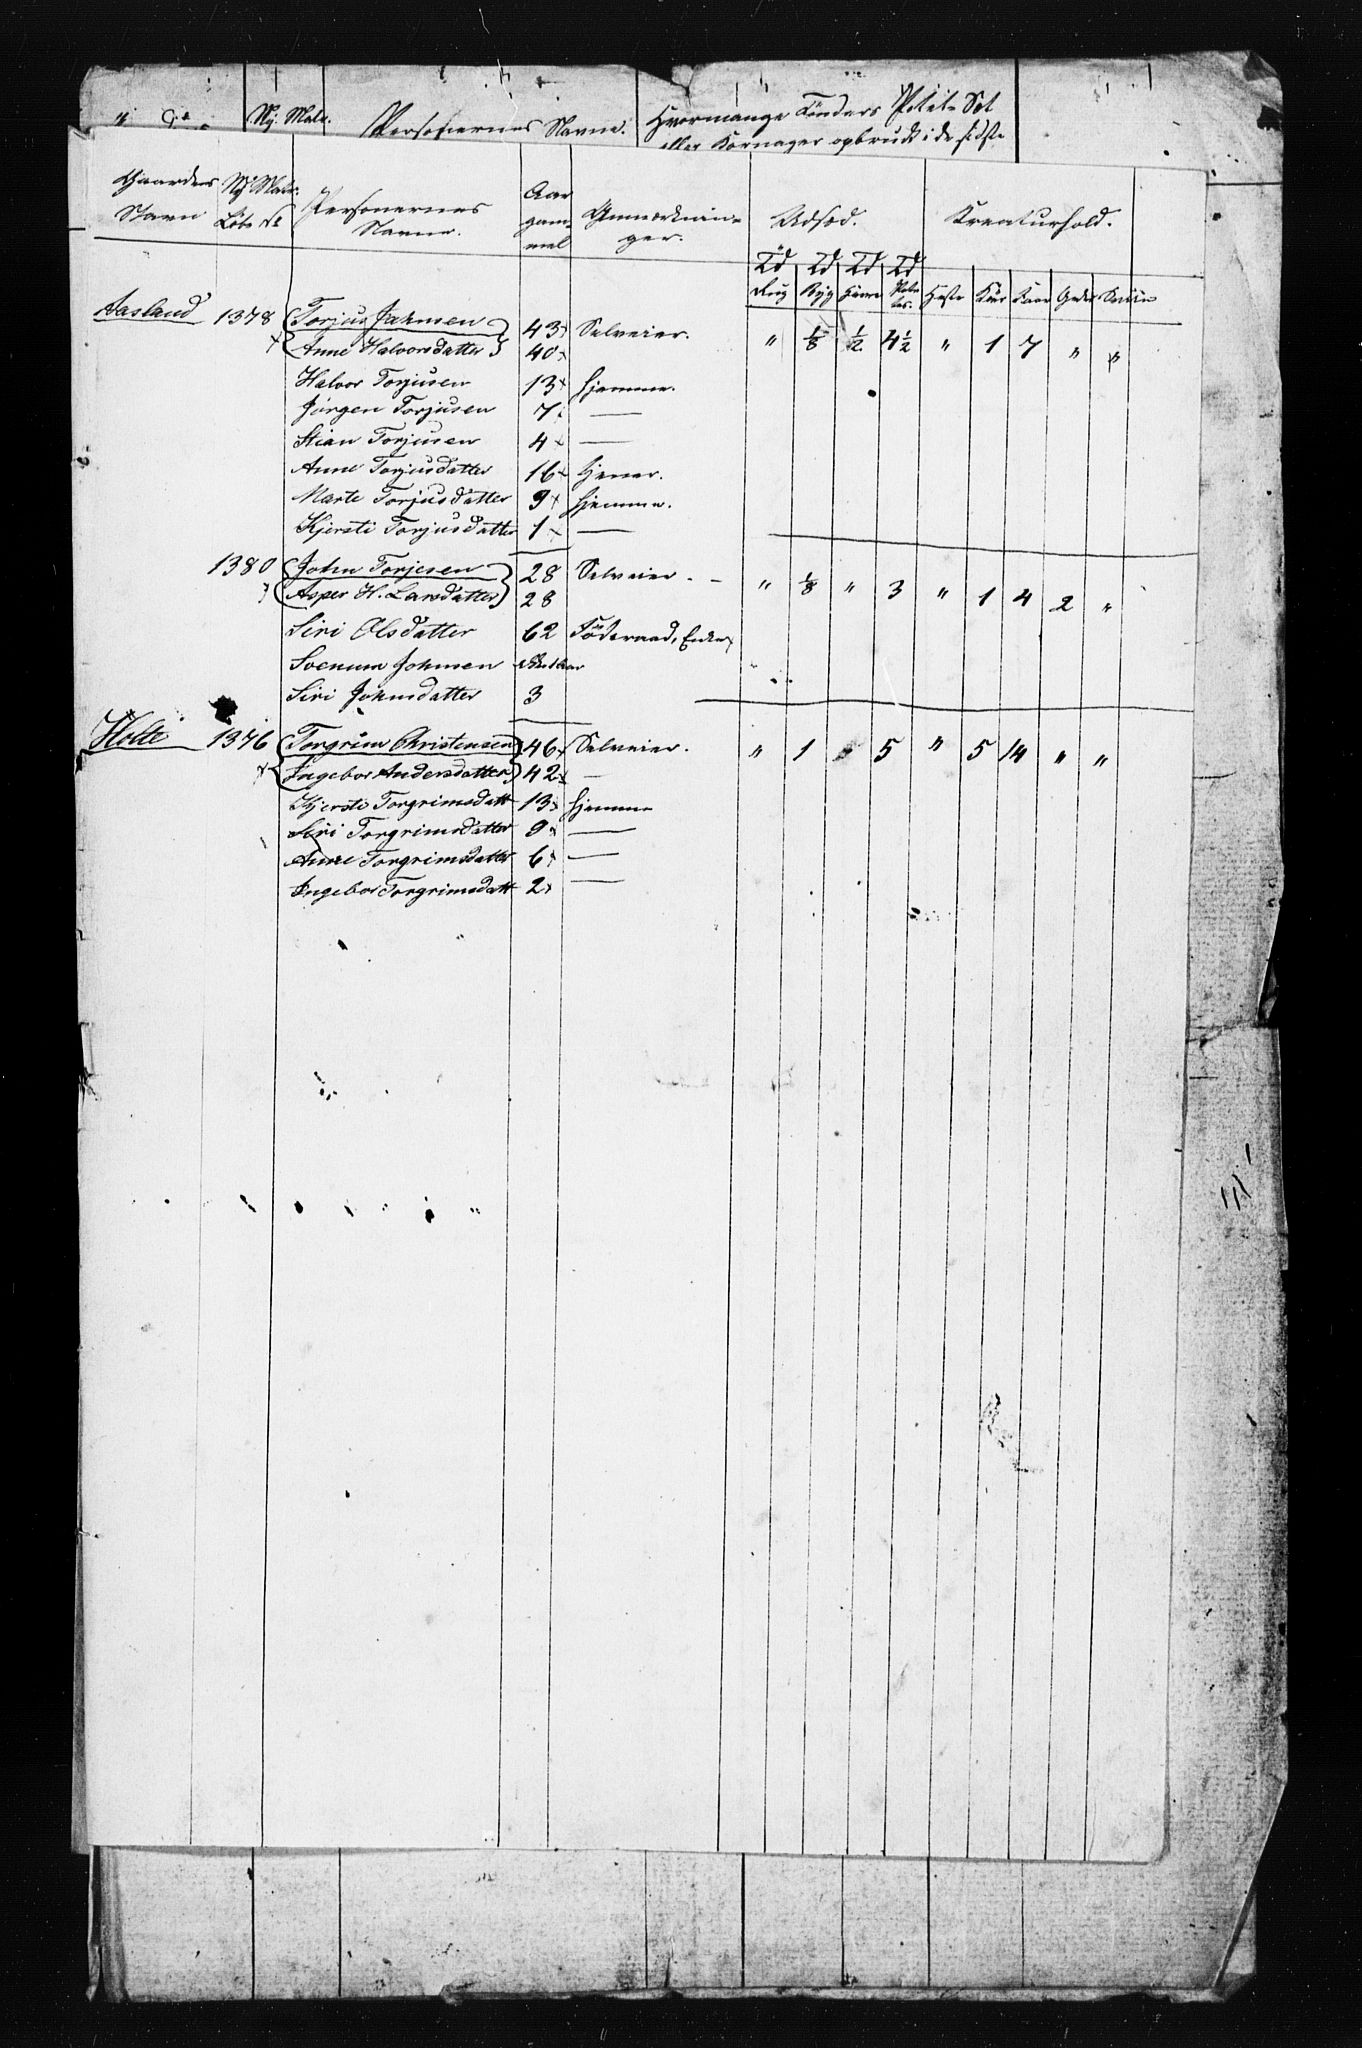 Ny. Matr. Personernes Navne. Hvormange Tönders Potet- Sæt
eller Kornager opbrudt i de sidste
Gaardens Navn Ny Matr. Löbe No Personernes Navne. Aar gammel Anmærkninger. Udsæd. Kreaturhold.
Td Rug Td Byg Td Havre Td Potetes. Heste Köer Faar Geder Sviin
Aasland 1378 Torjus Johnsen 43 Selveier. " 1/8 1/2 4 1/2 " 1 7 " "
Anne Halvorsdatter 40
Halvor Torjusen 13 hjemme.
Jörgen Torjusen 7 —
Stian Torjusen 4 —
Anne Torjusdatter 16 tjener.
Marte Torjusdatter 9 hjemme.
Kjersti Torjusdatter 1 —
1380 John Torjesen 28 Selveier. - " 1/8 " 3 " 1 4 2 "
Asper H. Larsdatter 28
Siri Olsdatter 62 Föderaad, Enke
Svenum Johnsen
Siri Johnsdatter 3
Holte 1376 Torgrim Christensen 46 Selveier. " 1 5 " 5 14 " "
Ingebor Andersdatter 42 —
Kjersti Torgrimsdatt 13 hjemme
Siri Torgrimsdatter 9 —
Anne Torgrimsdatter 6 —
Ingebor Torgrimsdatt 2 —